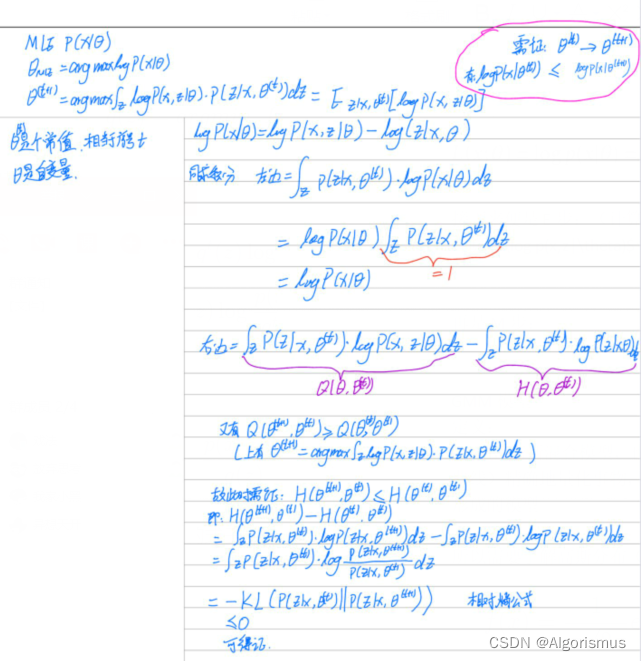 MLE P(x|θ)
θ_MLE = argmax log P(x|θ)
θ^(t+1) = argmax ∫_z log P(x, z|θ) · P(z|x, θ^(t)) dz = E_{z|x, θ^(t)} [log P(x, z|θ)]
需证: θ^(t) → θ^(t+1)
有 log P(x|θ^(t)) ≤ log P(x|θ^(t+1))
θ^(t)是个常值, 相较于
θ是变量.
log P(x|θ) = log P(x, z|θ) - log(z|x, θ)
同求积分 左边 = ∫_z P(z|x, θ^(t)) · log P(x|θ) dz
= log P(x|θ) ∫_z P(z|x, θ^(t)) dz
= 1
= log P(x|θ)
右边 = ∫_z P(z|x, θ^(t)) · log P(x, z|θ) dz - ∫_z P(z|x, θ^(t)) · log P(z|x,θ) dz
Q(θ, θ^(t)) H(θ, θ^(t))
又有 Q(θ^(t+1), θ^(t)) ≥ Q(θ^(t), θ^(t))
(上有 θ^(t+1) = argmax ∫_z log P(x, z|θ) · P(z|x, θ^(t)) dz)
故此时需证: H(θ^(t+1), θ^(t)) ≤ H(θ^(t), θ^(t))
即: H(θ^(t+1), θ^(t)) - H(θ^(t), θ^(t))
= ∫_z P(z|x, θ^(t)) · log P(z|x, θ^(t+1)) dz - ∫_z P(z|x, θ^(t)) · log P(z|x, θ^(t)) dz
= ∫_z P(z|x, θ^(t)) · log P(z|x, θ^(t+1)) / P(z|x, θ^(t)) dz
= -KL(P(z|x, θ^(t)) || P(z|x, θ^(t+1))) 相对熵公式
≤ 0
可得证.
CSDN @Algorismus